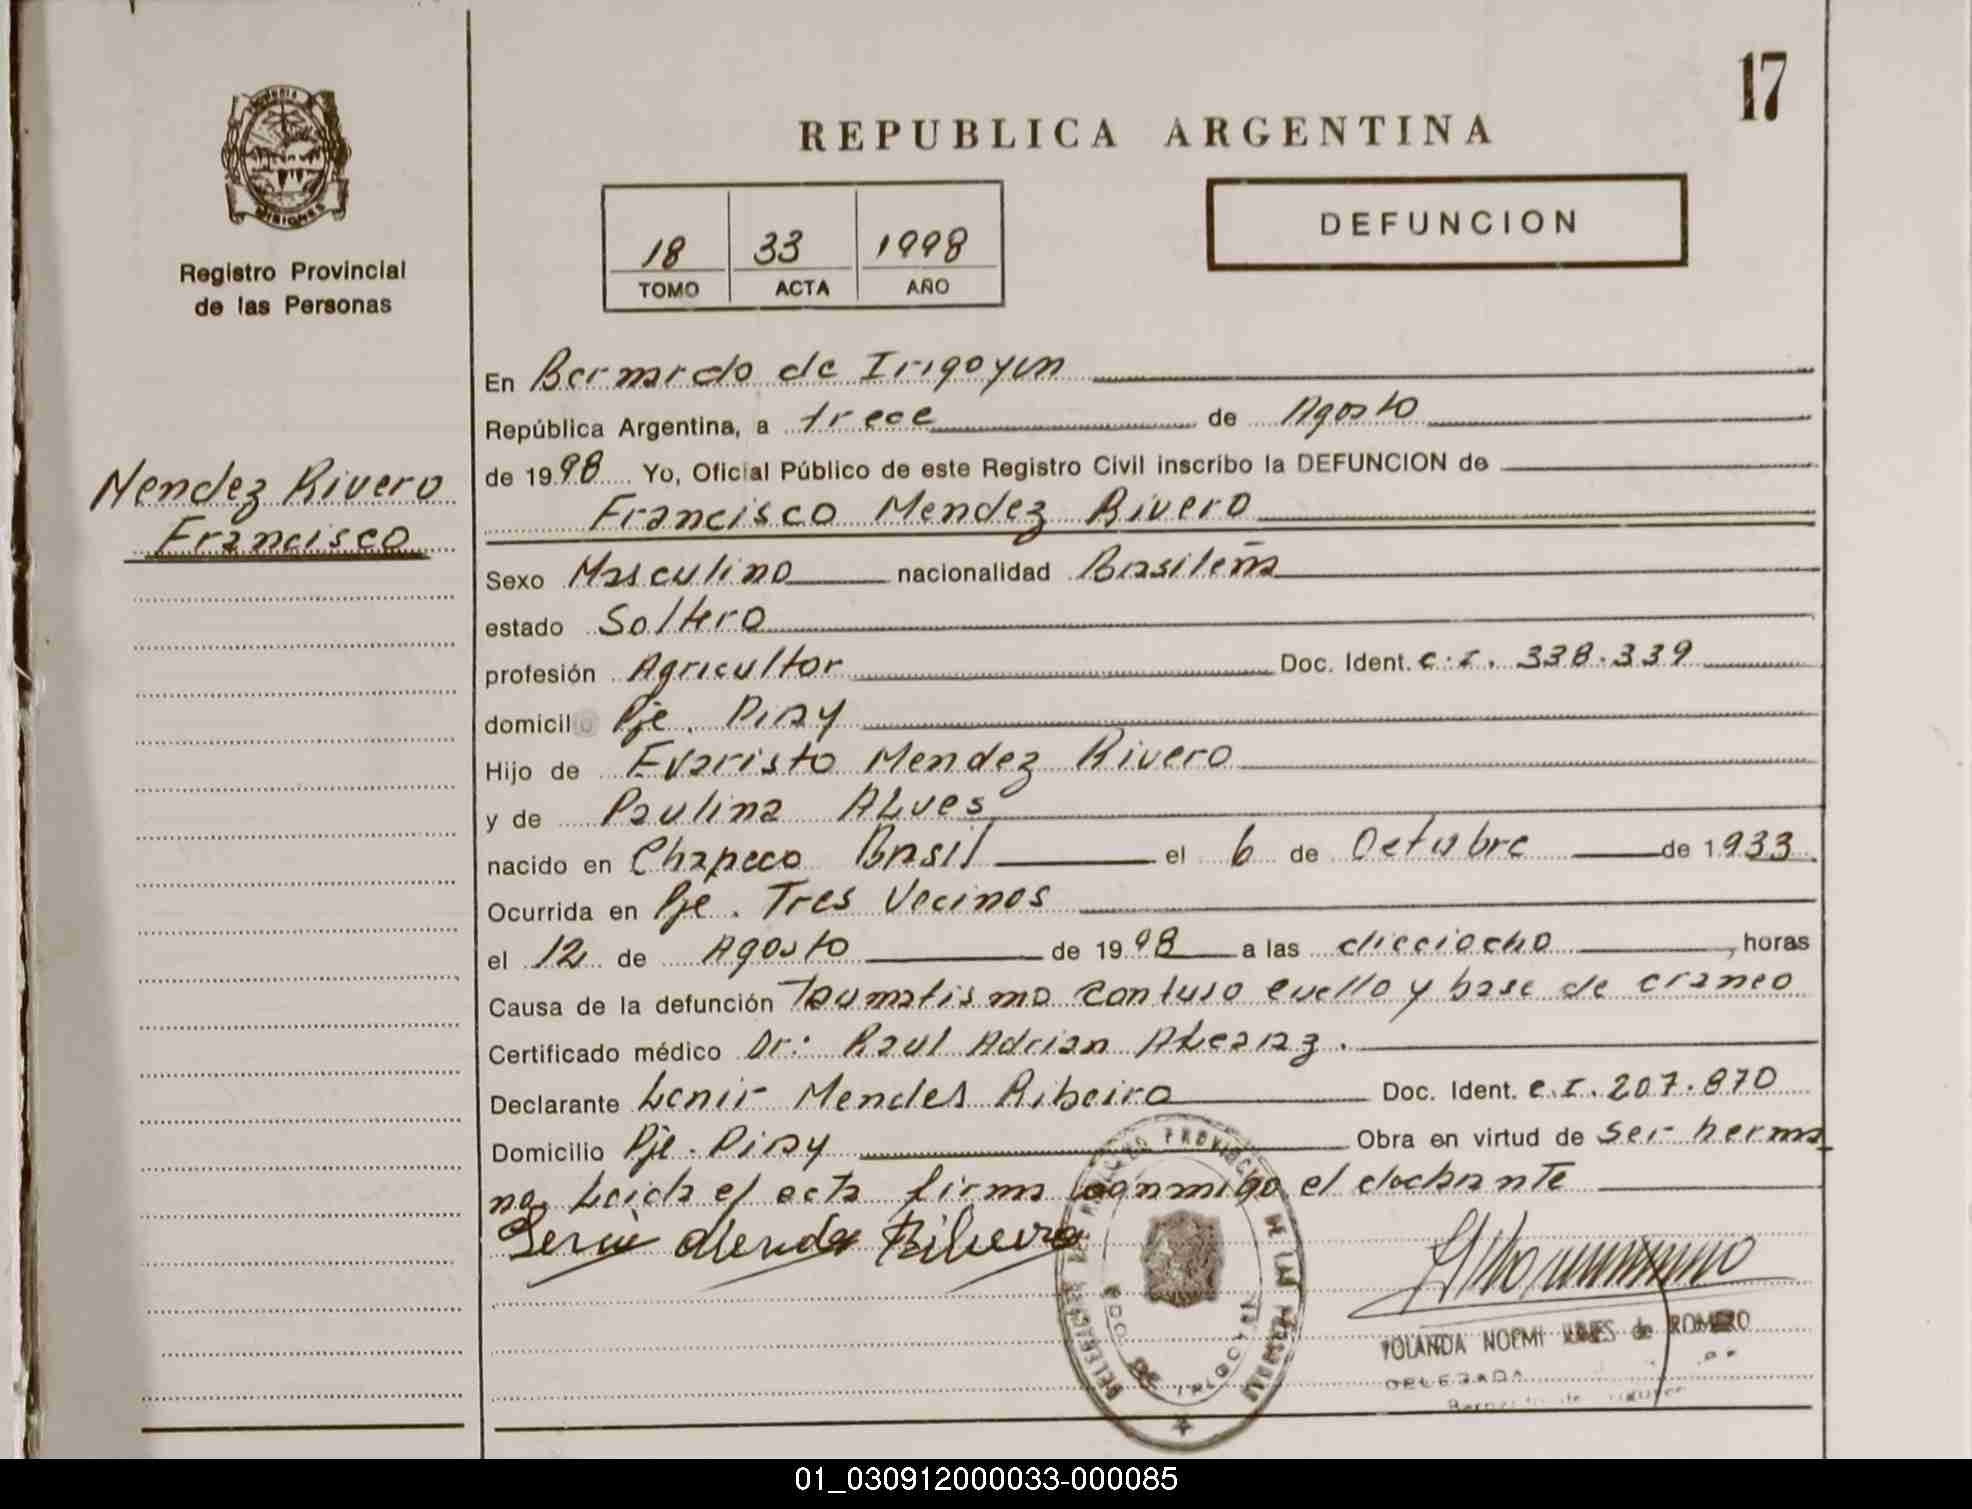 17
REPUBLICA ARGENTINA
DEFUNCION
18 33 1998
TOMO ACTA AÑO
MISIONES
Registro Provincial
de las Personas
Mendez Rivero
Francisco
En Bernardo de Irigoyen
República Argentina, a trece de Agosto
de 1998 Yo, Oficial Público de este Registro Civil inscribo la DEFUNCION de
Francisco Mendez Rivero
Sexo Masculino nacionalidad Brasileña
estado Soltero
profesión Agricultor Doc. Ident. C.I. 338.339
domicilio Pje. Piray
Hijo de Evaristo Mendez Rivero
y de Paulina Alves
nacido en Chapeco Brasil el 6 de Octubre de 1933
Ocurrida en Pje. Tres Vecinos
el 12 de Agosto de 1998 a las dieciocho, horas
Causa de la defunción Taumatismo Contuso cuello y base de craneo
Certificado médico Dr: Raul Adrian Alcaraz.
Declarante Lenir Mendes Ribeiro Doc. Ident. C.I. 207.870
Domicilio Pje. Piray Obra en virtud de ser herma
no, Leida el acta firma conmigo el declarante
REGISTRO PROVINCIAL DE LAS PERSONAS
DELEGACION
BDO. DE IRIGOYEN
YOLANDA NOEMI de ROMERO
DELEGADA
01_030912000033-000085